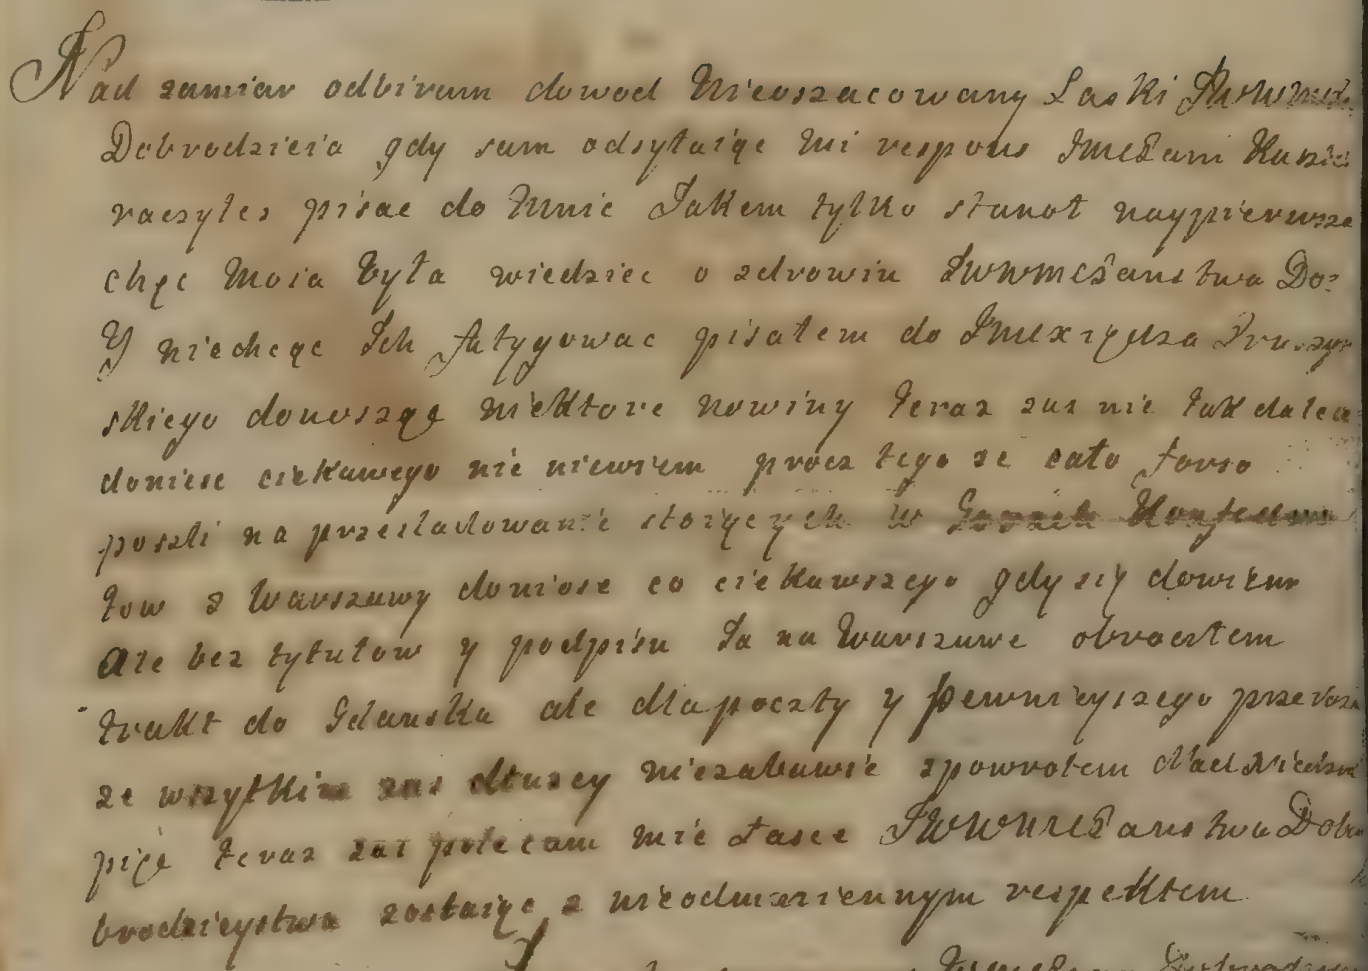 Nad zamiar odbiram dowod Nieoszacowany Laski
Dobrodzieia gdy sam odsyłaiąc mi respons ImcPani
raczyłeś pisac do Mnie Jakem tylko stanoł naypierwsza
chęc Moia była wiedziec o zdrowiu JWWMCPanstwa Do:
Y niechcąc Ich fatygowac pisałem do Imcxiędza
skiego donosząc niektore nowiny teraz zas nie tak dalece
doniesc ciekawego nic niewiem procz tego że cało forso
poszli na przesladowanie stoiących w Gorach
tow z Warszawy doniose co ciekawszego gdy się dowiem
Ale bez tytułow y podpisu Ja na Warszawe obrociłem
trakt do Gdanska ale dla poczty y pewnieyszego
ze wszytkim zas dłuzey niezabawie zpowrotem
pięc teraz zas polecam mie Łasce JWWMCPanstwa Dobro
brodzieystwa zostaiąc z nieodmiennym respektem